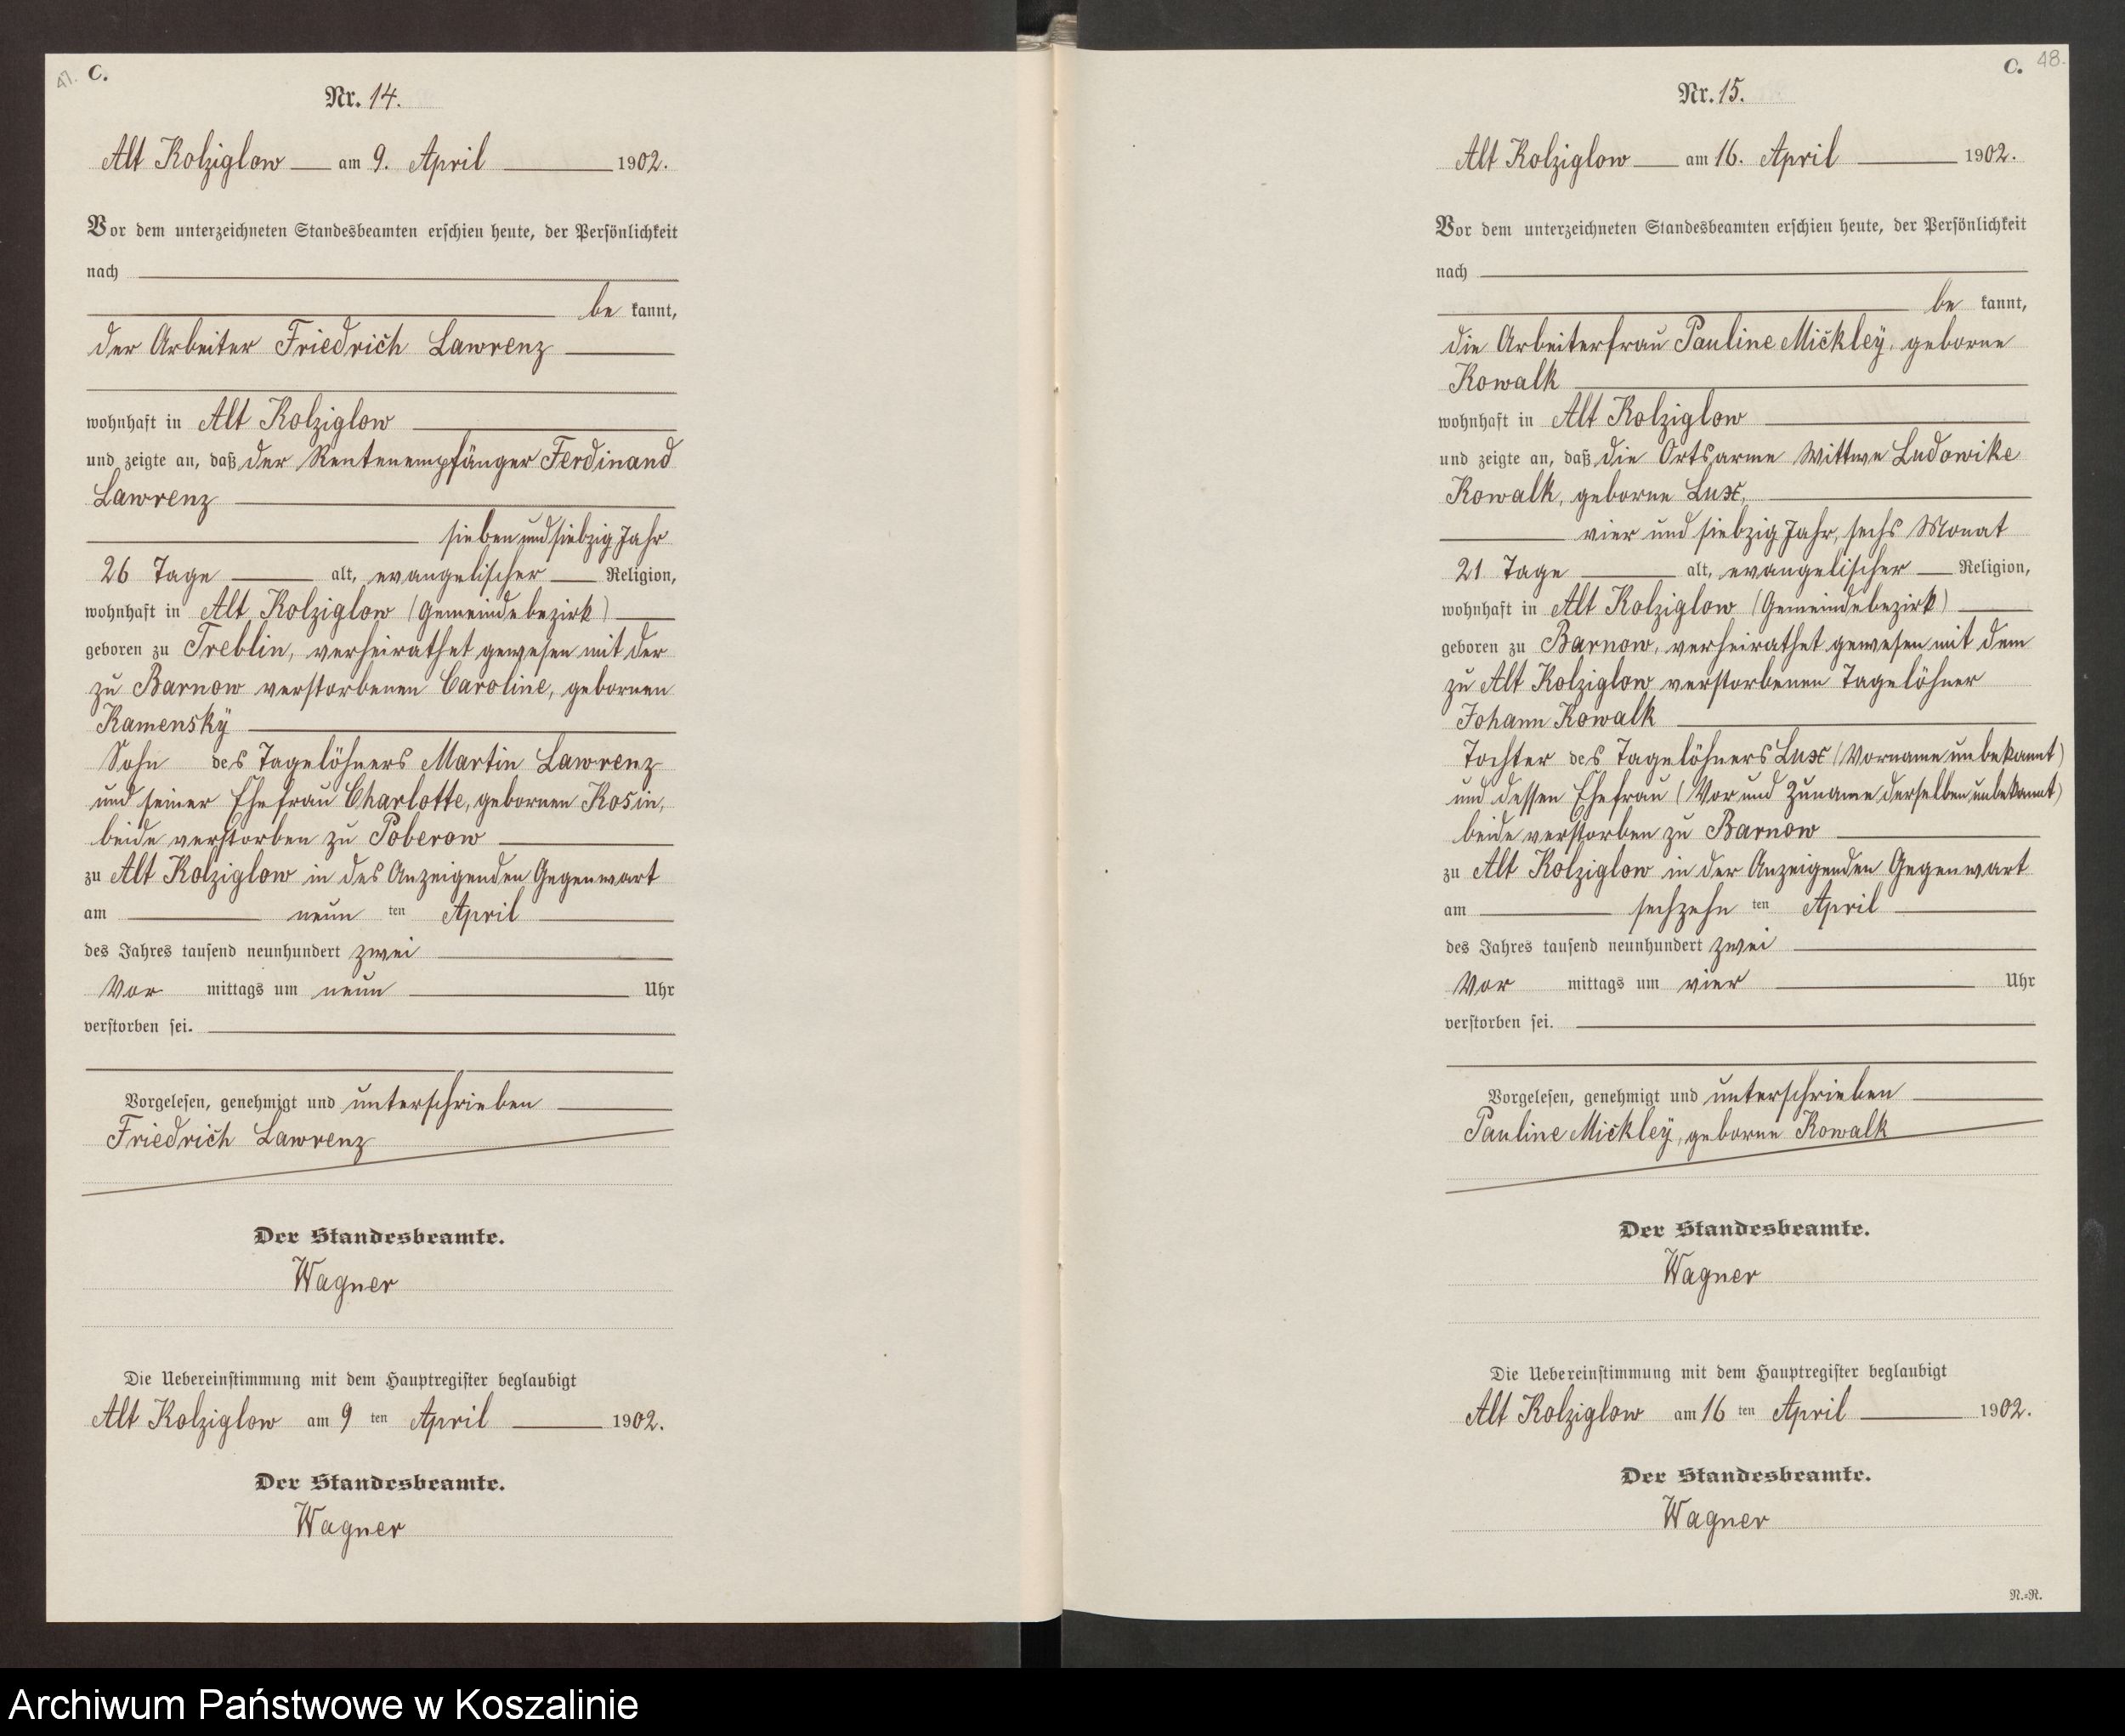 47. C.
Nr. 14.
Alt Kolziglow am 9. April 1902.
Vor dem unterzeichneten Standesbeamten erschien heute, der Persönlichkeit
nach
be kannt,
der Arbeiter Friedrich Lawrenz
wohnhaft in Alt Kolziglow
und zeigte an, daß der Rentenempfänger Ferdinand
Lawrenz
sieben und siebzig Jahr
26 Tage alt, evangelischer Religion,
wohnhaft in Alt Kolziglow (Gemeindebezirk)
geboren zu Treblin, verheirathet gewesen mit der
zu Barnow verstorbenen Caroline, gebornen
Kamensky
Sohn des Tagelöhners Martin Lawrenz
und seiner Ehefrau Charlotte, gebornen Kosin,
beide verstorben zu Poberow
zu Alt Kolziglow in des Anzeigenden Gegenwart
am neun ten April
des Jahres tausend neunhundert zwei
Vor mittags um neun Uhr
verstorben sei.
Vorgelesen, genehmigt und unterschrieben
Friedrich Lawrenz
Der Standesbeamte.
Wagner
Die Uebereinstimmung mit dem Hauptregister beglaubigt
Alt Kolziglow am 9 ten April 1902.
Der Standesbeamte.
Wagner
C. 48.
Nr. 15.
Alt Kolziglow am 16. April 1902.
Vor dem unterzeichneten Standesbeamten erschien heute, der Persönlichkeit
nach
be kannt,
die Arbeiterfrau Pauline Mickley, geborne
Kowalk
wohnhaft in Alt Kolziglow
und zeigte an, daß die Ortsarme Wittwe Ludowike
Kowalk, geborne Lux,
vier und siebzig Jahr, sechs Monat
21 Tage alt, evangelischer Religion,
wohnhaft in Alt Kolziglow (Gemeindebezirk)
geboren zu Barnow, verheirathet gewesen mit dem
zu Alt Kolziglow verstorbenen Tagelöhner
Johann Kowalk
Tochter des Tagelöhners Lux (Vorname unbekannt)
und dessen Ehefrau (Vor und Zuname derselben unbekannt)
beide verstorben zu Barnow
zu Alt Kolziglow in der Anzeigenden Gegenwart
am sechzehn ten April
des Jahres tausend neunhundert zwei
Vor mittags um vier Uhr
verstorben sei.
Vorgelesen, genehmigt und unterschrieben
Pauline Mickley, geborne Kowalk
Der Standesbeamte.
Wagner
Die Uebereinstimmung mit dem Hauptregister beglaubigt
Alt Kolziglow am 16 ten April 1902.
Der Standesbeamte.
Wagner
N.=R.
Archiwum Państwowe w Koszalinie